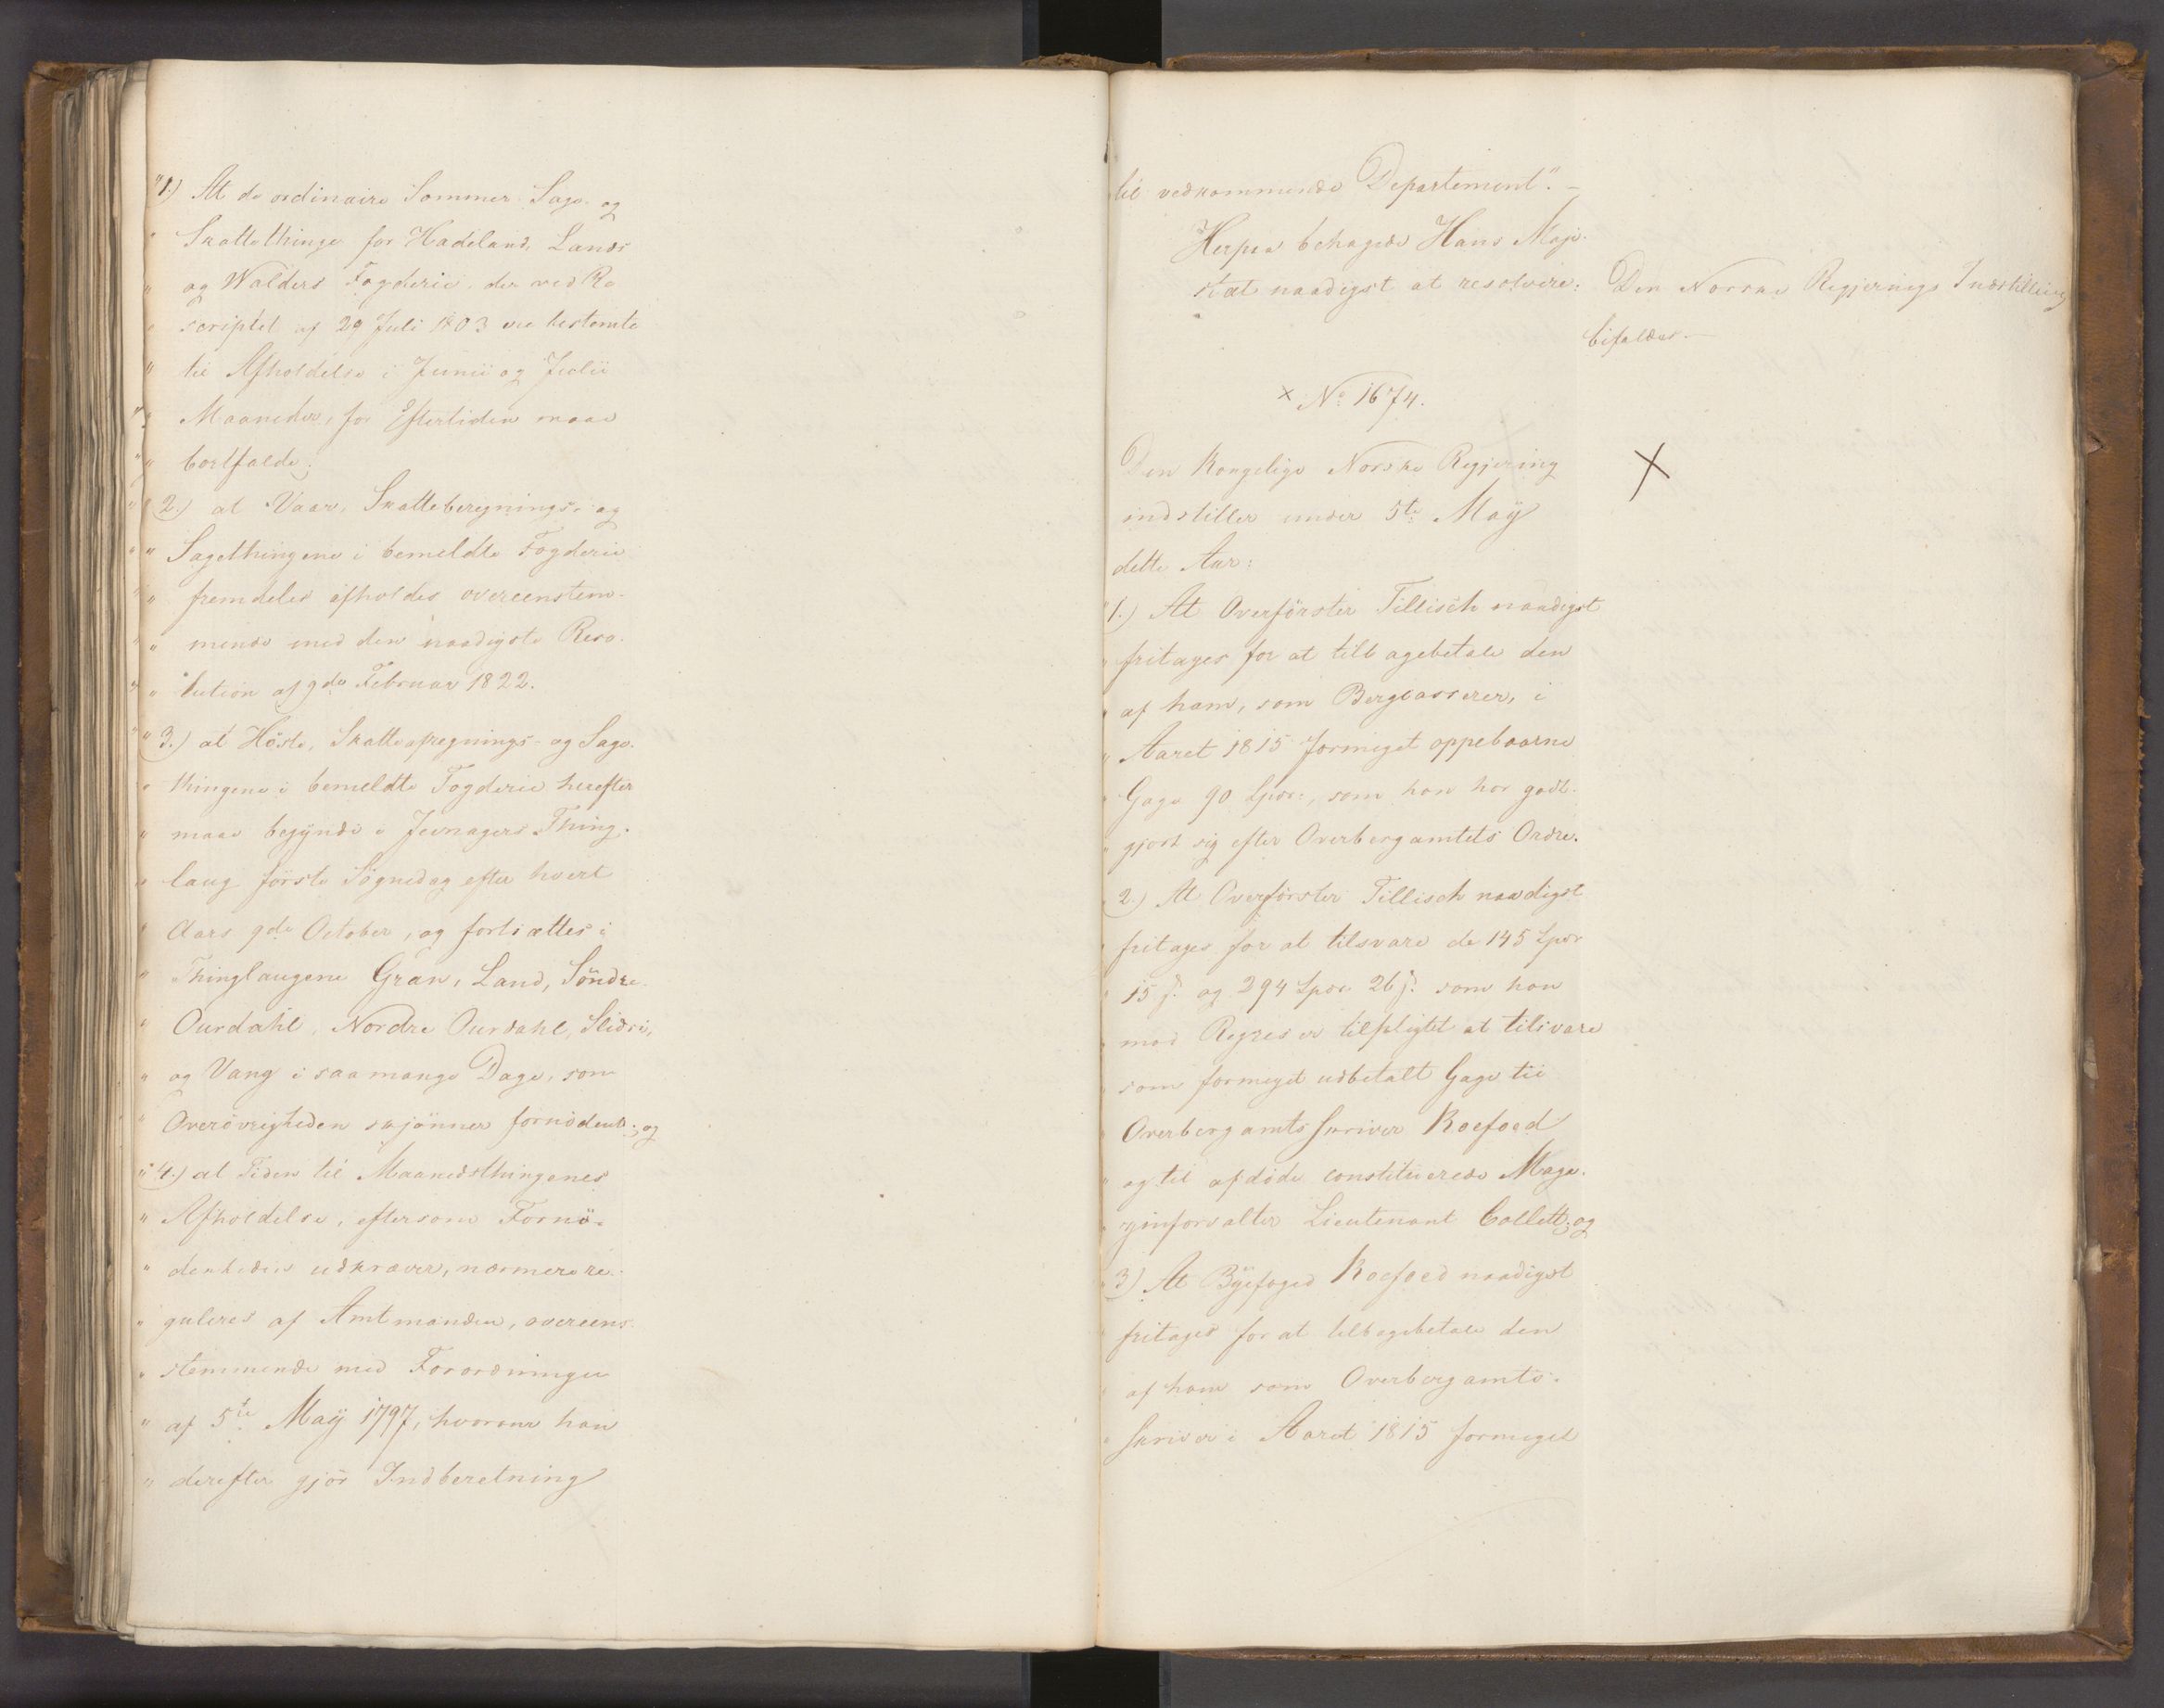 "1.) At de ordinaire Sommer Sage- og
" Skattethinge for Hadeland, Lands
" og Walders Fogderie, der ved Re
" scriptet af 29 Juli 1803 ere bestemte
" til Afholdelse i Junii og Julii
" Maaneder, for Eftertiden maae
" bortfalde;
" 2.) at Vaar, Skatteberegnings- og
" Sagethingene i bemeldte Fogderie
" fremdeles afholdes overeenstem-
" mende med den naadigste Reso-
" lution af 9de Februar 1822.
" 3.) at Höste, Skatteafregnings- og Sage-
" thingene i bemeldte Fogderie herefter
" maae begynde i Jevnagers Thing-
" laug förste Sögnedag efter hvert
" Aars 9de October, og fortsættes i
" Thinglaugene Gran, Land, Söndre
" Ourdahl, Nordre Ourdahl, Slidre,
" og Vang i saa mange Dage, som
" Overövrigheden skjönner fornödent; og
" 4.) at Tiden til Maanedsthingenes
" Afholdelse, eftersom Fornö-
" denheden udkræver, nærmere re-
" guleres af Amtmanden, overeens-
" stemmende med Forordningen
" af 5te May 1797, hvorom han
" derefter gjör Indberetning
til vedkommende Departement". –
Herpaa behagede Hans Maje-
stæt naadigst at resolvere:
Den Norske Regjerings Indstilling
bifaldes. –
x No 1674.
Den Kongelige Norske Regjering
indstiller under 5te May
dette Aar:
" 1.) At Overförster Tillisch naadigst
" fritages for at tilbagebetale den
" af ham, som Bergcasserer, i
" Aaret 1815 formeget oppebaarne
" Gage 90 Spd:, som han har godt-
" gjort sig efter Overbergamtets Ordre.
" 2.) At Overförster Tillisch naadigst
" fritages for at tilsvare de 145 Spd
" 15 ſ. og 294 Spd 26 ſ. som han
" mod Regres er tilpligtet at tilsvare
" som formeget udbetalt Gage til
" Overbergamts Skriver Roefoed
" og til afdöde constituerede Maga-
" zinforvalter Lieutenant Collett; og
" 3.) At Byefoged Roefoed naadigst
" fritages for at tilbagebetale den
" af ham som Overbergamts-
" Skriver i Aaret 1815 formeget